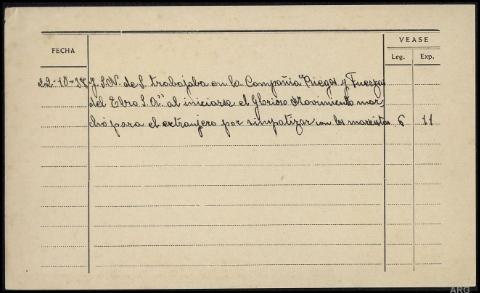 FECHA
VEASE
Leg. Exp.
22-10-38 J. S.N. de S. trabajaba en la Compañia "Riegos y Fuerzas
del Ebro S.A." al iniciarse el Glorioso Movimiento mar
chó para el extranjero por simpatizar con los marxistas 6 11
ARG